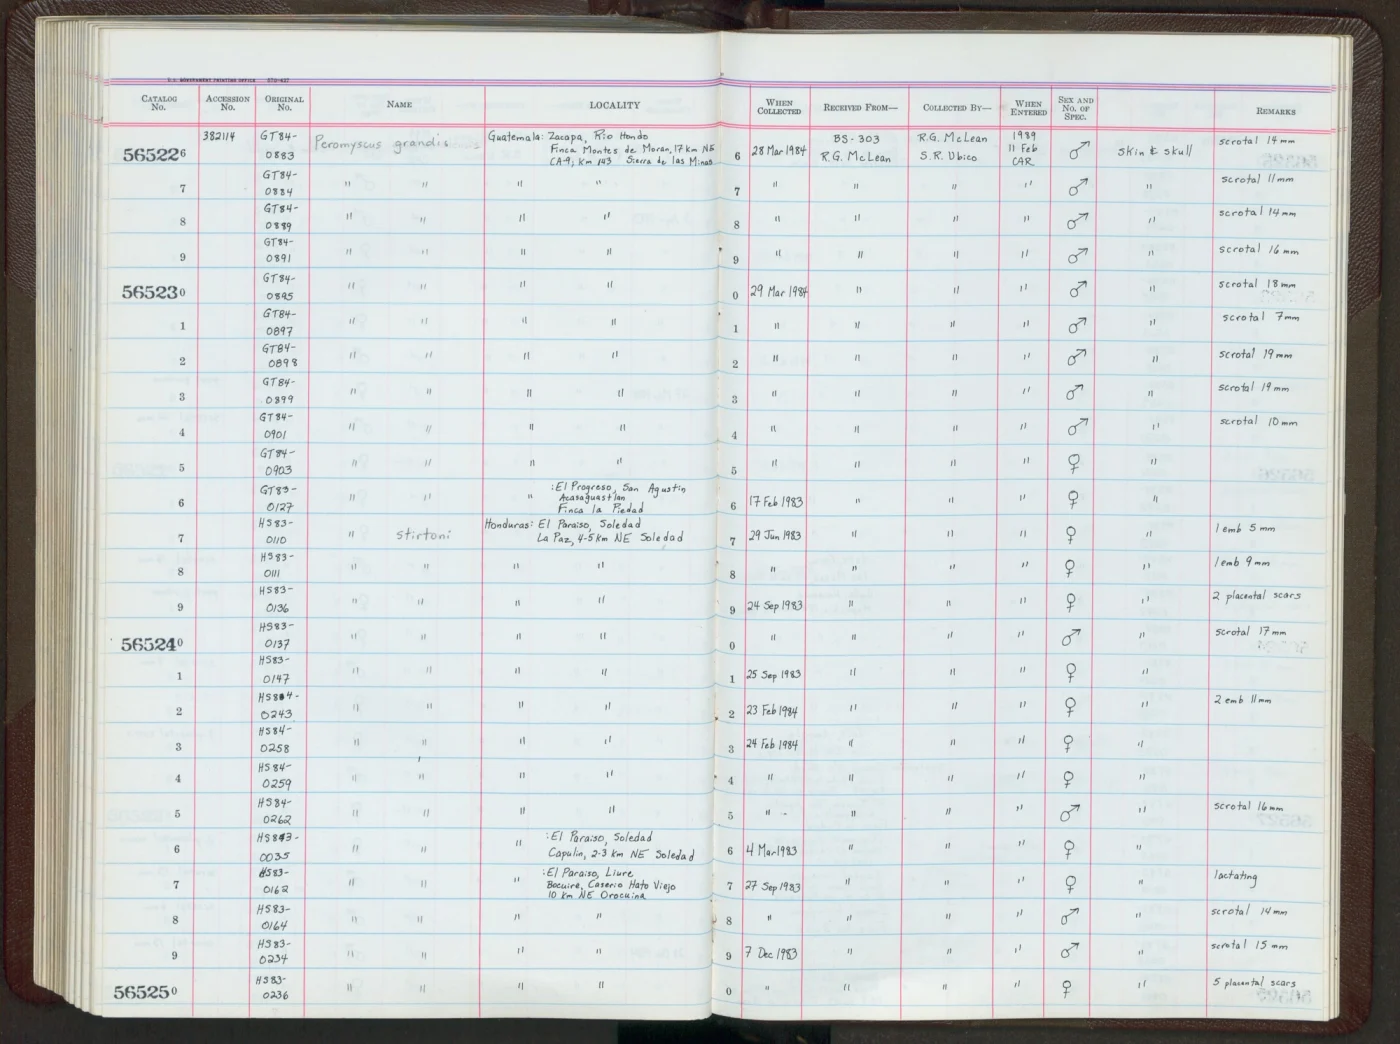 U.S. GOVERNMENT PRINTING OFFICE
CATALOG No. ACCESSION No. ORIGINAL No. NAME LOCALITY WHEN COLLECTED RECEIVED FROM— COLLECTED BY— WHEN ENTERED SEX AND NO. OF SPEC. REMARKS
565226 382114 GT84-0883 Peromyscus grandis Guatemala: Zacapa, Rio Hondo Finca Montes de Moran, 17 km NE CA-9, Km 143 Sierra de las Minas 6 28 Mar 1984 BS-303 R.G. McLean R.G. McLean S.R. Ubico 1989 11 Feb CAR ♂ skin & skull scrotal 14 mm
7 GT84-0884 " " " " 7 " " " " ♂ " scrotal 11 mm
8 GT84-0889 " " " " 8 " " " " ♂ " scrotal 14 mm
9 GT84-0891 " " " " 9 " " " " ♂ " scrotal 16 mm
565230 GT84-0895 " " " " 0 29 Mar 1984 " " " ♂ " scrotal 18 mm
1 GT84-0897 " " " " 1 " " " " ♂ " scrotal 7 mm
2 GT84-0898 " " " " 2 " " " " ♂ " scrotal 19 mm
3 GT84-0899 " " " " 3 " " " " ♂ " scrotal 19 mm
4 GT84-0901 " " " " 4 " " " " ♂ " scrotal 10 mm
5 GT84-0903 " " " " 5 " " " " ♀ "
6 GT83-0127 " " " :El Progreso, San Agustin Acasaguastlan Finca la Piedad 6 17 Feb 1983 " " " ♀ "
7 HS83-0110 " stirtoni Honduras: El Paraiso, Soledad La Paz, 4-5 km NE Soledad 7 29 Jun 1983 " " " ♀ " 1 emb 5 mm
8 HS83-0111 " " " " 8 " " " " ♀ " 1 emb 9 mm
9 HS83-0136 " " " " 9 24 Sep 1983 " " " ♀ " 2 placental scars
565240 HS83-0137 " " " " 0 " " " " ♂ " scrotal 17 mm
1 HS83-0147 " " " " 1 25 Sep 1983 " " " ♀ "
2 HS84-0243 " " " " 2 23 Feb 1984 " " " ♀ " 2 emb 11 mm
3 HS84-0258 " " " " 3 24 Feb 1984 " " " ♀ "
4 HS84-0259 " " " " 4 " " " " ♀ "
5 HS84-0262 " " " " 5 " " " " ♂ " scrotal 16 mm
6 HS83-0035 " " " :El Paraiso, Soledad Capulin, 2-3 km NE Soledad 6 4 Mar 1983 " " " ♀ "
7 HS83-0162 " " " :El Paraiso, Liure Bocuire, Caserio Hato Viejo 10 km NE Orocuina 7 27 Sep 1983 " " " ♀ " lactating
8 HS83-0164 " " " " 8 " " " " ♂ " scrotal 14 mm
9 HS83-0234 " " " " 9 7 Dec 1983 " " " ♂ " scrotal 15 mm
565250 HS83-0236 " " " " 0 " " " " ♀ " 5 placental scars